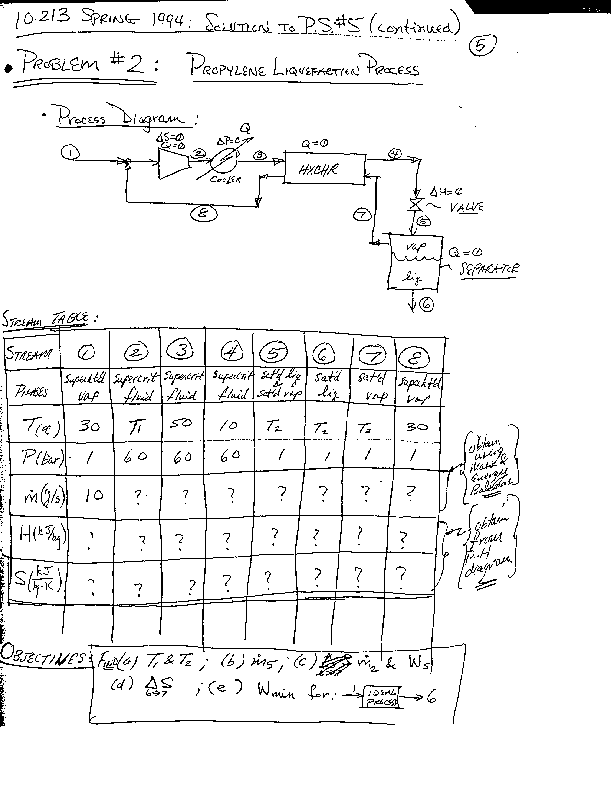 10.213 SPRING 1994: SOLUTION TO P.S.#5 (continued)
5
• PROBLEM #2: PROPYLENE LIQUEFACTION PROCESS
• Process Diagram:
Q
ΔS=0
ΔP=0
Q=0
1
2
3
4
COOLER
HXCHR
ΔH=0
VALVE
8
7
5
vap
Q=0
SEPARATOR
liq
6
STREAM TABLE:
STREAM 1 2 3 4 5 6 7 8
PHASES Superht'd vap Supercrit fluid Supercrit fluid Supercrit fluid Sat'd liq & sat'd vap Sat'd liq Sat'd vap Superht'd vap
T(°C) 30 T1 50 10 T2 T2 T2 30
P(bar) 1 60 60 60 1 1 1 1
ṁ(g/s) 10 ? ? ? ? ? ? ?
H(kJ/kg) ? ? ? ? ? ? ? ?
S(kJ/kg-K) ? ? ? ? ? ? ? ?
obtain
using
Mass &
Energy
Balances
obtain
from
P-H
diagram
OBJECTIVES: Find (a) T1 & T2; (b) ṁ5; (c) ṁ2 & Ws
(d) ΔS 6→7; (e) Wmin for: 1 → IDEAL PROCESS → 6